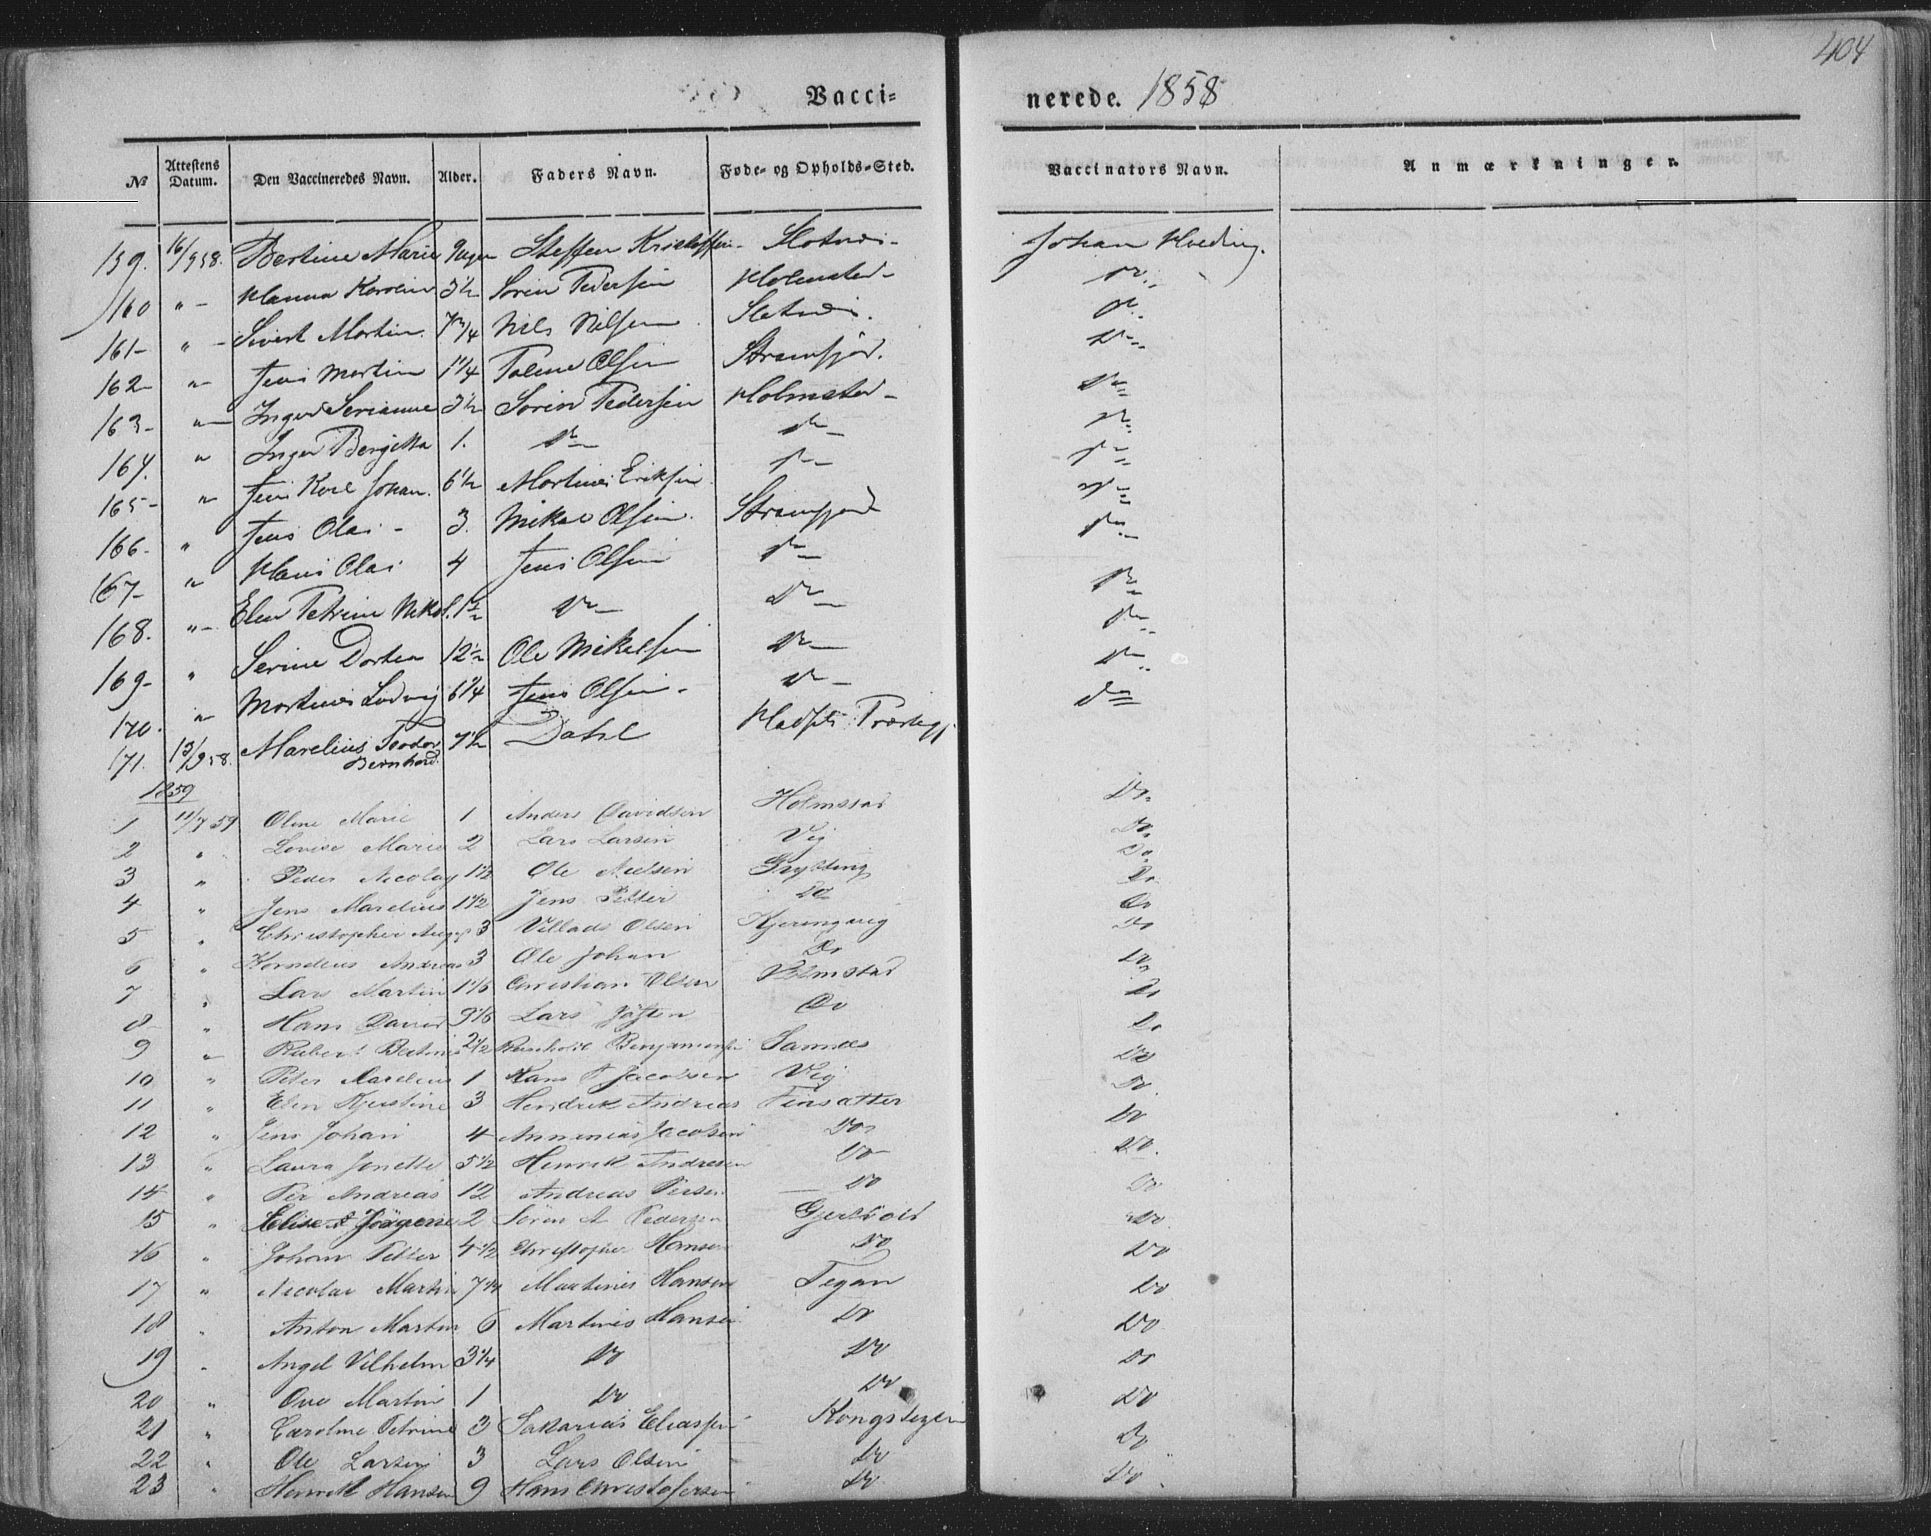 404
Vacci- nerede. 1858
No Attestens Datum. Den Vaccineredes Navn. Alder. Faders Navn. Føde- og Opholds-Sted. Vaccinators Navn. Anmærkninger.
159. 16/9 58. Bertine Marie Steffen Slotnæs- Johan
160 " - Hanna Karolin 3½ Sørin Pedersen Holmsted- do
161- " - Sivert Martin 7¾ Nils Nilsen do
162- " Jens Martin 1¼ Olsen Strømfjord. do
163- " Inger Serianne 3½ Sørin Pedersen Holmsted- do
164. " Inger Bergitta 1. do do do
165- " Jens Karl Johan. 6½ Martines Eriksen do do
166- " Jens Olai - 3. Mikal Olsen. Strømfjord do
167- " Hans Olai 4 Jens Olsen do do
168. " - Elen Petrine Nikol. 1½ do do do
169- " Serine Dortea 12½ Ole Mikelsen do do
170. " Martines Ludvig 6¼ Jens Olsen- do - do
171. 13/9 58. Marelius Teodor Bernhard 7½ Dahl do
1859
1 11/7 59 Oline Marie 1 Anders Davidsen Holmstad Do.
2 " Lovise Marie 2 Lars Larsen Vig Do.
3 " Peder Nicolay 1½ Ole Nielsen Grytting Do
4 " Jens Marelius 1½ Jens Petter Do Do
5 " Christopher Aug 3 Villads Olsen Kjerengvig Do
6 " Kornelius Andreas 3 Ole Johan Do Do
7 " Lars Martin 1⅙ Christian Olsen Holmstad Do
8 " Hans David 9⅙ Lars Do Do
9 " Bertines 2½ Benjaminsen Sannes Do
10 " Peter Marelius 1 Hans P Jacobsen Vig Do
11 " Elen Kjerstine 3 Hendrik Andreas Finsætter Do
12 " Jens Johan 4 Annanias Jacobsen Do Do
13 " Laura Jonette 5½ Henrik Andresen Do Do.
14 " Per Andreas 12 Andreas Persen Do Do
15 " Elise Jørgene 2 Søren A Pedersen Do
16 " Johan Petter 4½ Christopher Hansen Do Do
17 " Nicolai Martin 7¼ Martines Hansen Tegan Do
18 " Anton Martin 6 Martines Hansen Do Do
19 " Angel Vilhelm 3¼ Do Do Do
20 " Ove Martin 1 Do Do Do
21 " Caroline Petrine 3 Sakarias Eliassen Do
22 " Ole Larsen 3 Lars Olsen Do Do
23 " Henrik Hansen 9 Hans Christofersen Do